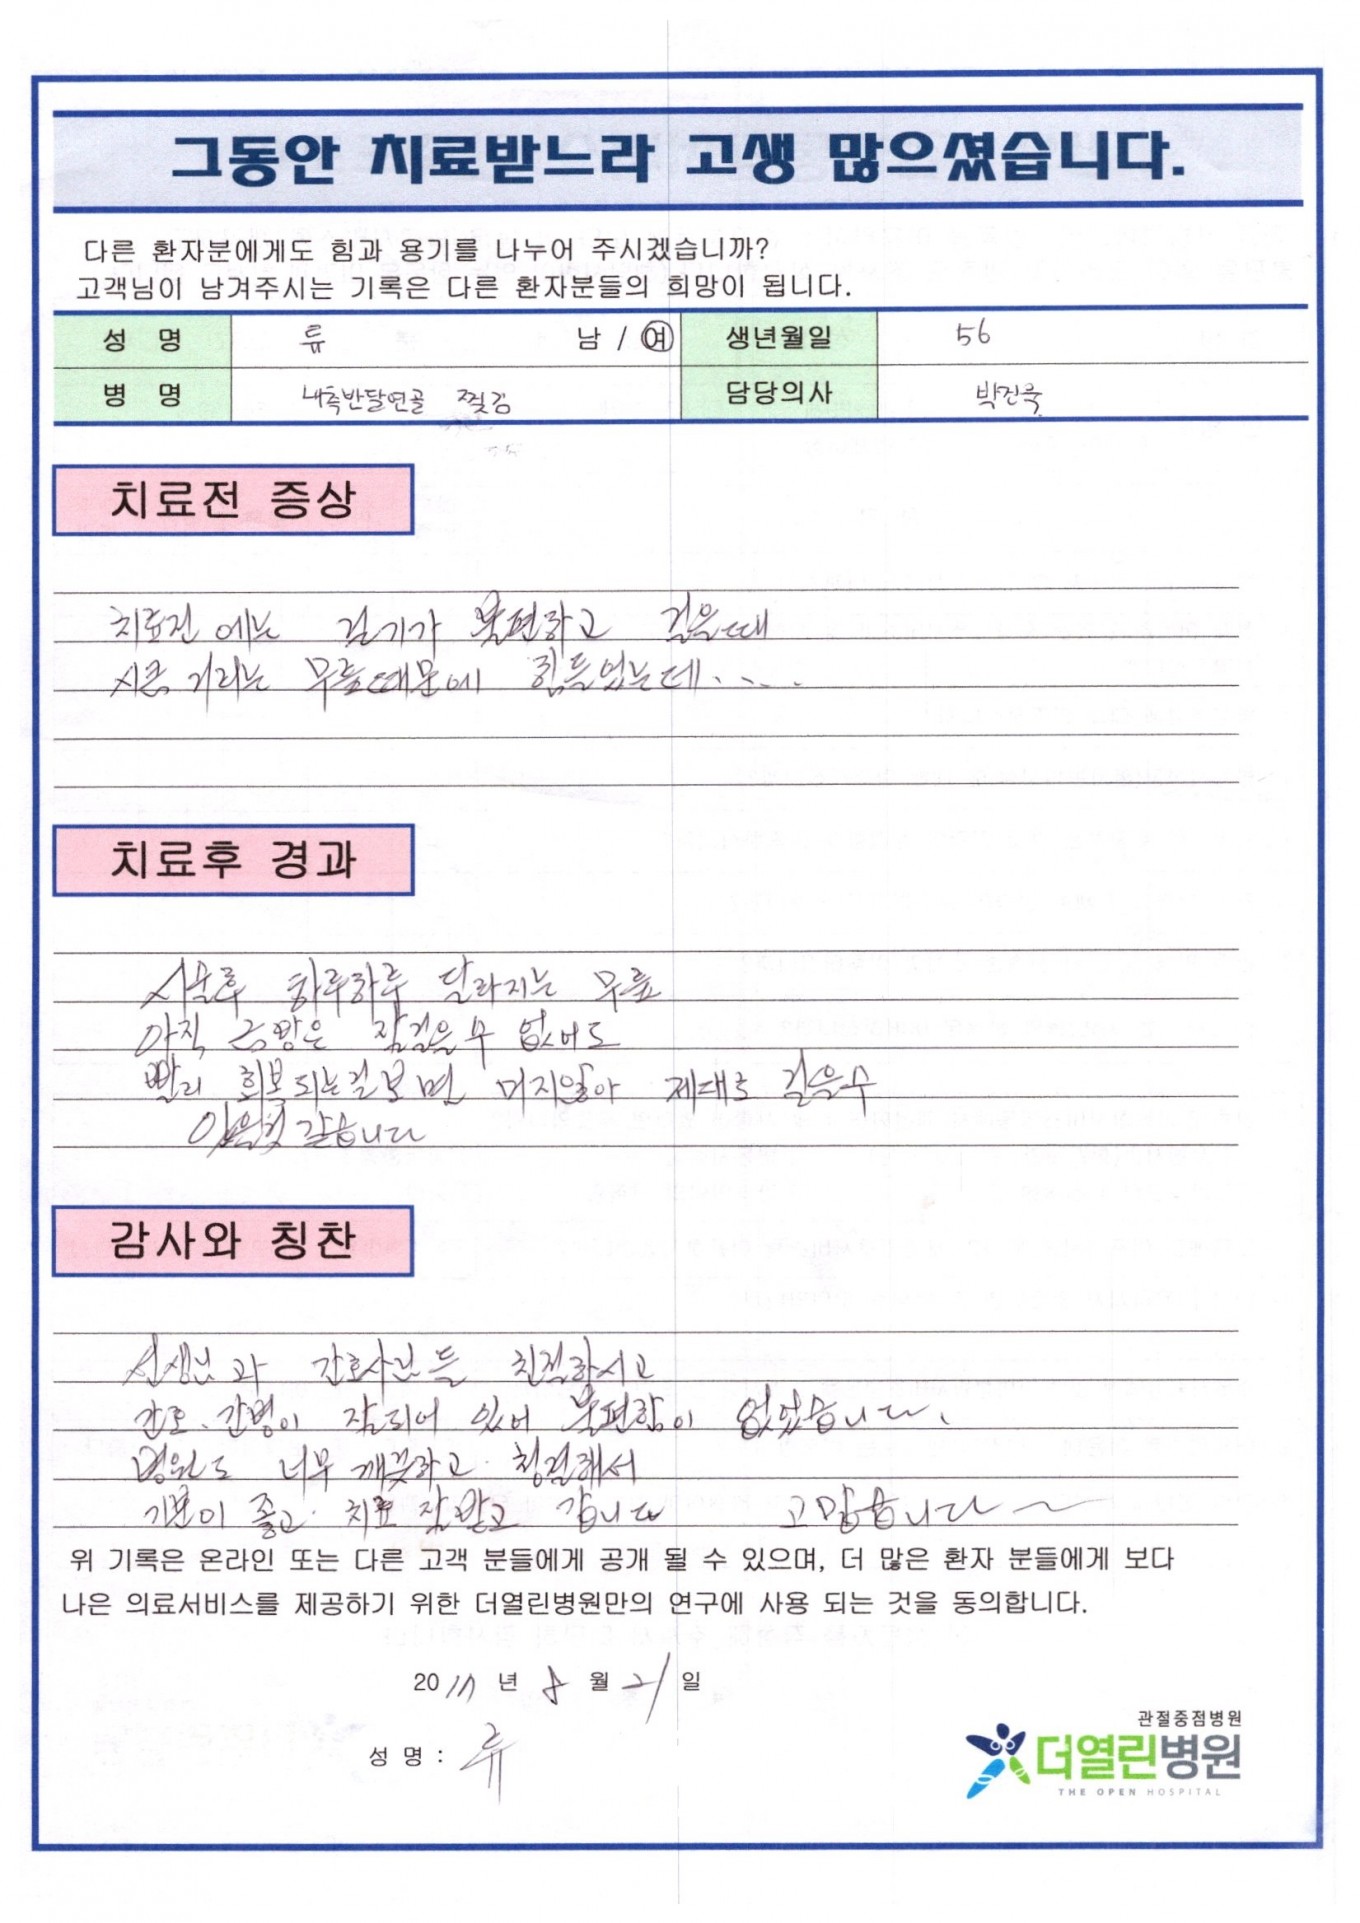 그동안 치료받느라 고생 많으셨습니다.
다른 환자분에게도 힘과 용기를 나누어 주시겠습니까?
고객님이 남겨주시는 기록은 다른 환자분들의 희망이 됩니다.
성 명 류 남 / 여 생년월일 56
병 명 내측반달연골 찢김 담당의사 박진욱
치료전 증상
치료전 에는 걷기가 불편하고 걸을때
시큰 거리는 무릎때문에 힘들었는데.....
치료후 경과
시술후 하루하루 달라지는 무릎
아직 금방은 잘걸을수 없어도
빨리 회복되는걸보면 머지않아 제대로 걸을수
있을것 같습니다
감사와 칭찬
선생님과 간호사님들 친절하시고
간호.간병이 잘되어 있어 불편함이 없었습니다.
병원도 너무 깨끗하고 청결해서
기분이 좋고 치료 잘받고 갑니다 고맙습니다~
위 기록은 온라인 또는 다른 고객 분들에게 공개 될 수 있으며, 더 많은 환자 분들에게 보다
나은 의료서비스를 제공하기 위한 더열린병원만의 연구에 사용 되는 것을 동의합니다.
20 년 8 월 21 일
성 명 : 류
관절중점병원
더열린병원
THE OPEN HOSPITAL